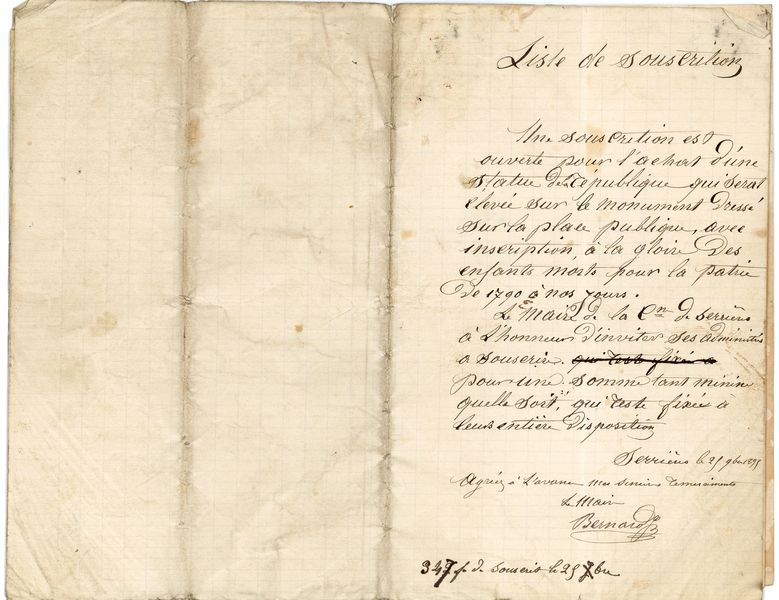 Liste de souscrition
Une souscrition est
ouverte pour l'achat d'une
statue de la république qui serat
elevée sur le monument dressé
sur la place publique, avec
inscription, à la gloire des
enfants morts pour la patrie
de 1790 à nos jours.
Le Maire de la Cne de Serrières
à l'honneur d'inviter ses administrés
a souscrire. qui reste fixée a
pour une somme tant minine
quelle soit, qui reste fixée à
leurs entière disposition
Serrières le 25 9bre
Agréez à l'avance mes sincères
Le Maire
Bernard
347 f de souscrit le 25 bre